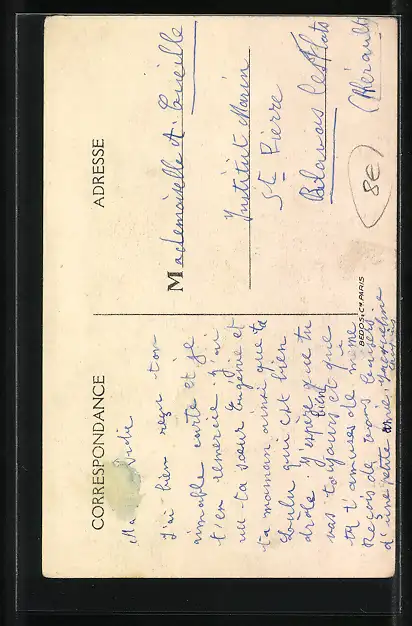 CORRESPONDANCE
Ma Didi
J'ai bien reçu ton
aimable carte et je
t'en remercie. J'ai
vu ta sœur Eugénie et
ta maman ainsi que ta
Loulu qui est bien
drôle. J'espère que tu
vas toujours bien et que
tu t'amuses de même
Reçois de bons baisers
d'une petite amie Jacqueline
ADRESSE
Mademoiselle A. Cueille
Institut Marin
St Pierre
Palavas les Flots
(Hérault)
8€
BEDOS & Cie PARIS